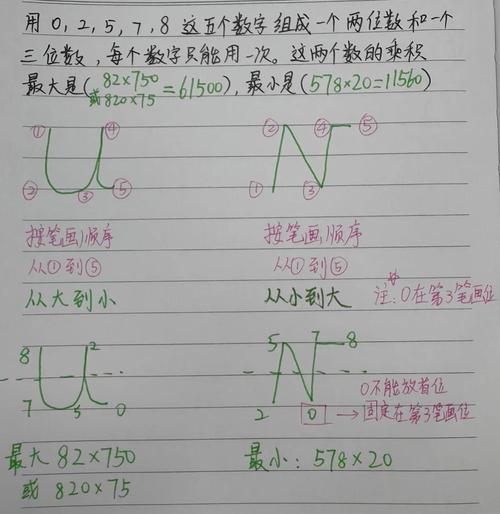 用 0, 2, 5, 7, 8 这五个数字组成一个两位数和一个
三位数, 每个数字只能用一次。这两个数的乘积
最大是( 82×750 或 820×75 =61500), 最小是(578×20=11560)
① ④
② ③ ⑤
② ④ ⑤
① ③
按笔画顺序 按笔画顺序
从①到⑤ 从①到⑤
从大到小 从小到大 注:0在第3笔画位
8 2
7 5 0
5 7 8
2 0
0不能放首位
→固定在第3笔画位
最大 82×750 最小: 578×20
或 820×75